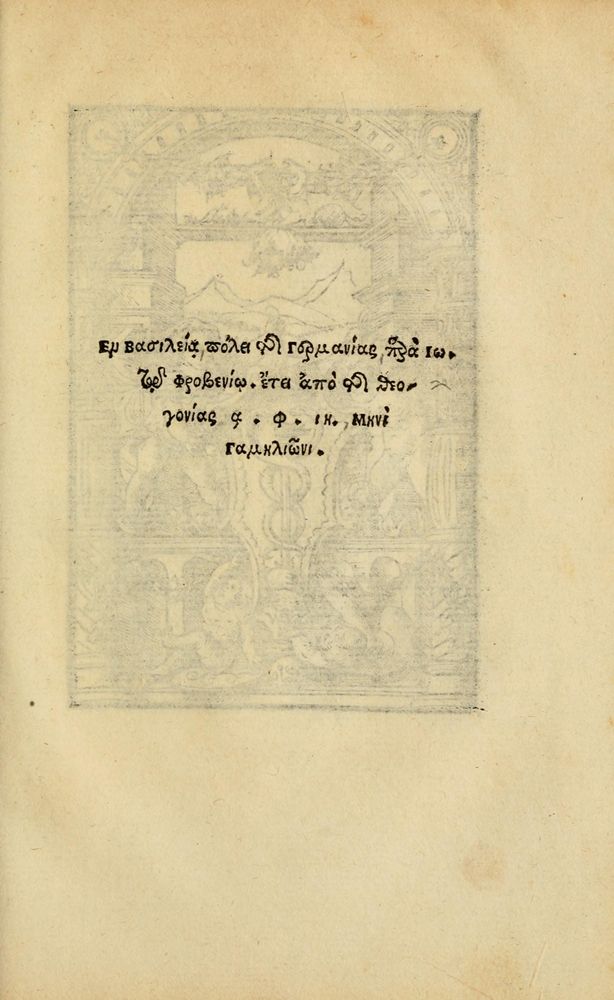 Εμ βασιλείᾳ, πόλει τῆς γερμανίας, παρὰ ιω.
τῷ φροβενίῳ. ἔτει ἀπὸ τῆς θεο-
γονίας α . φ . ιη., μηνὶ
γαμηλιῶνι.